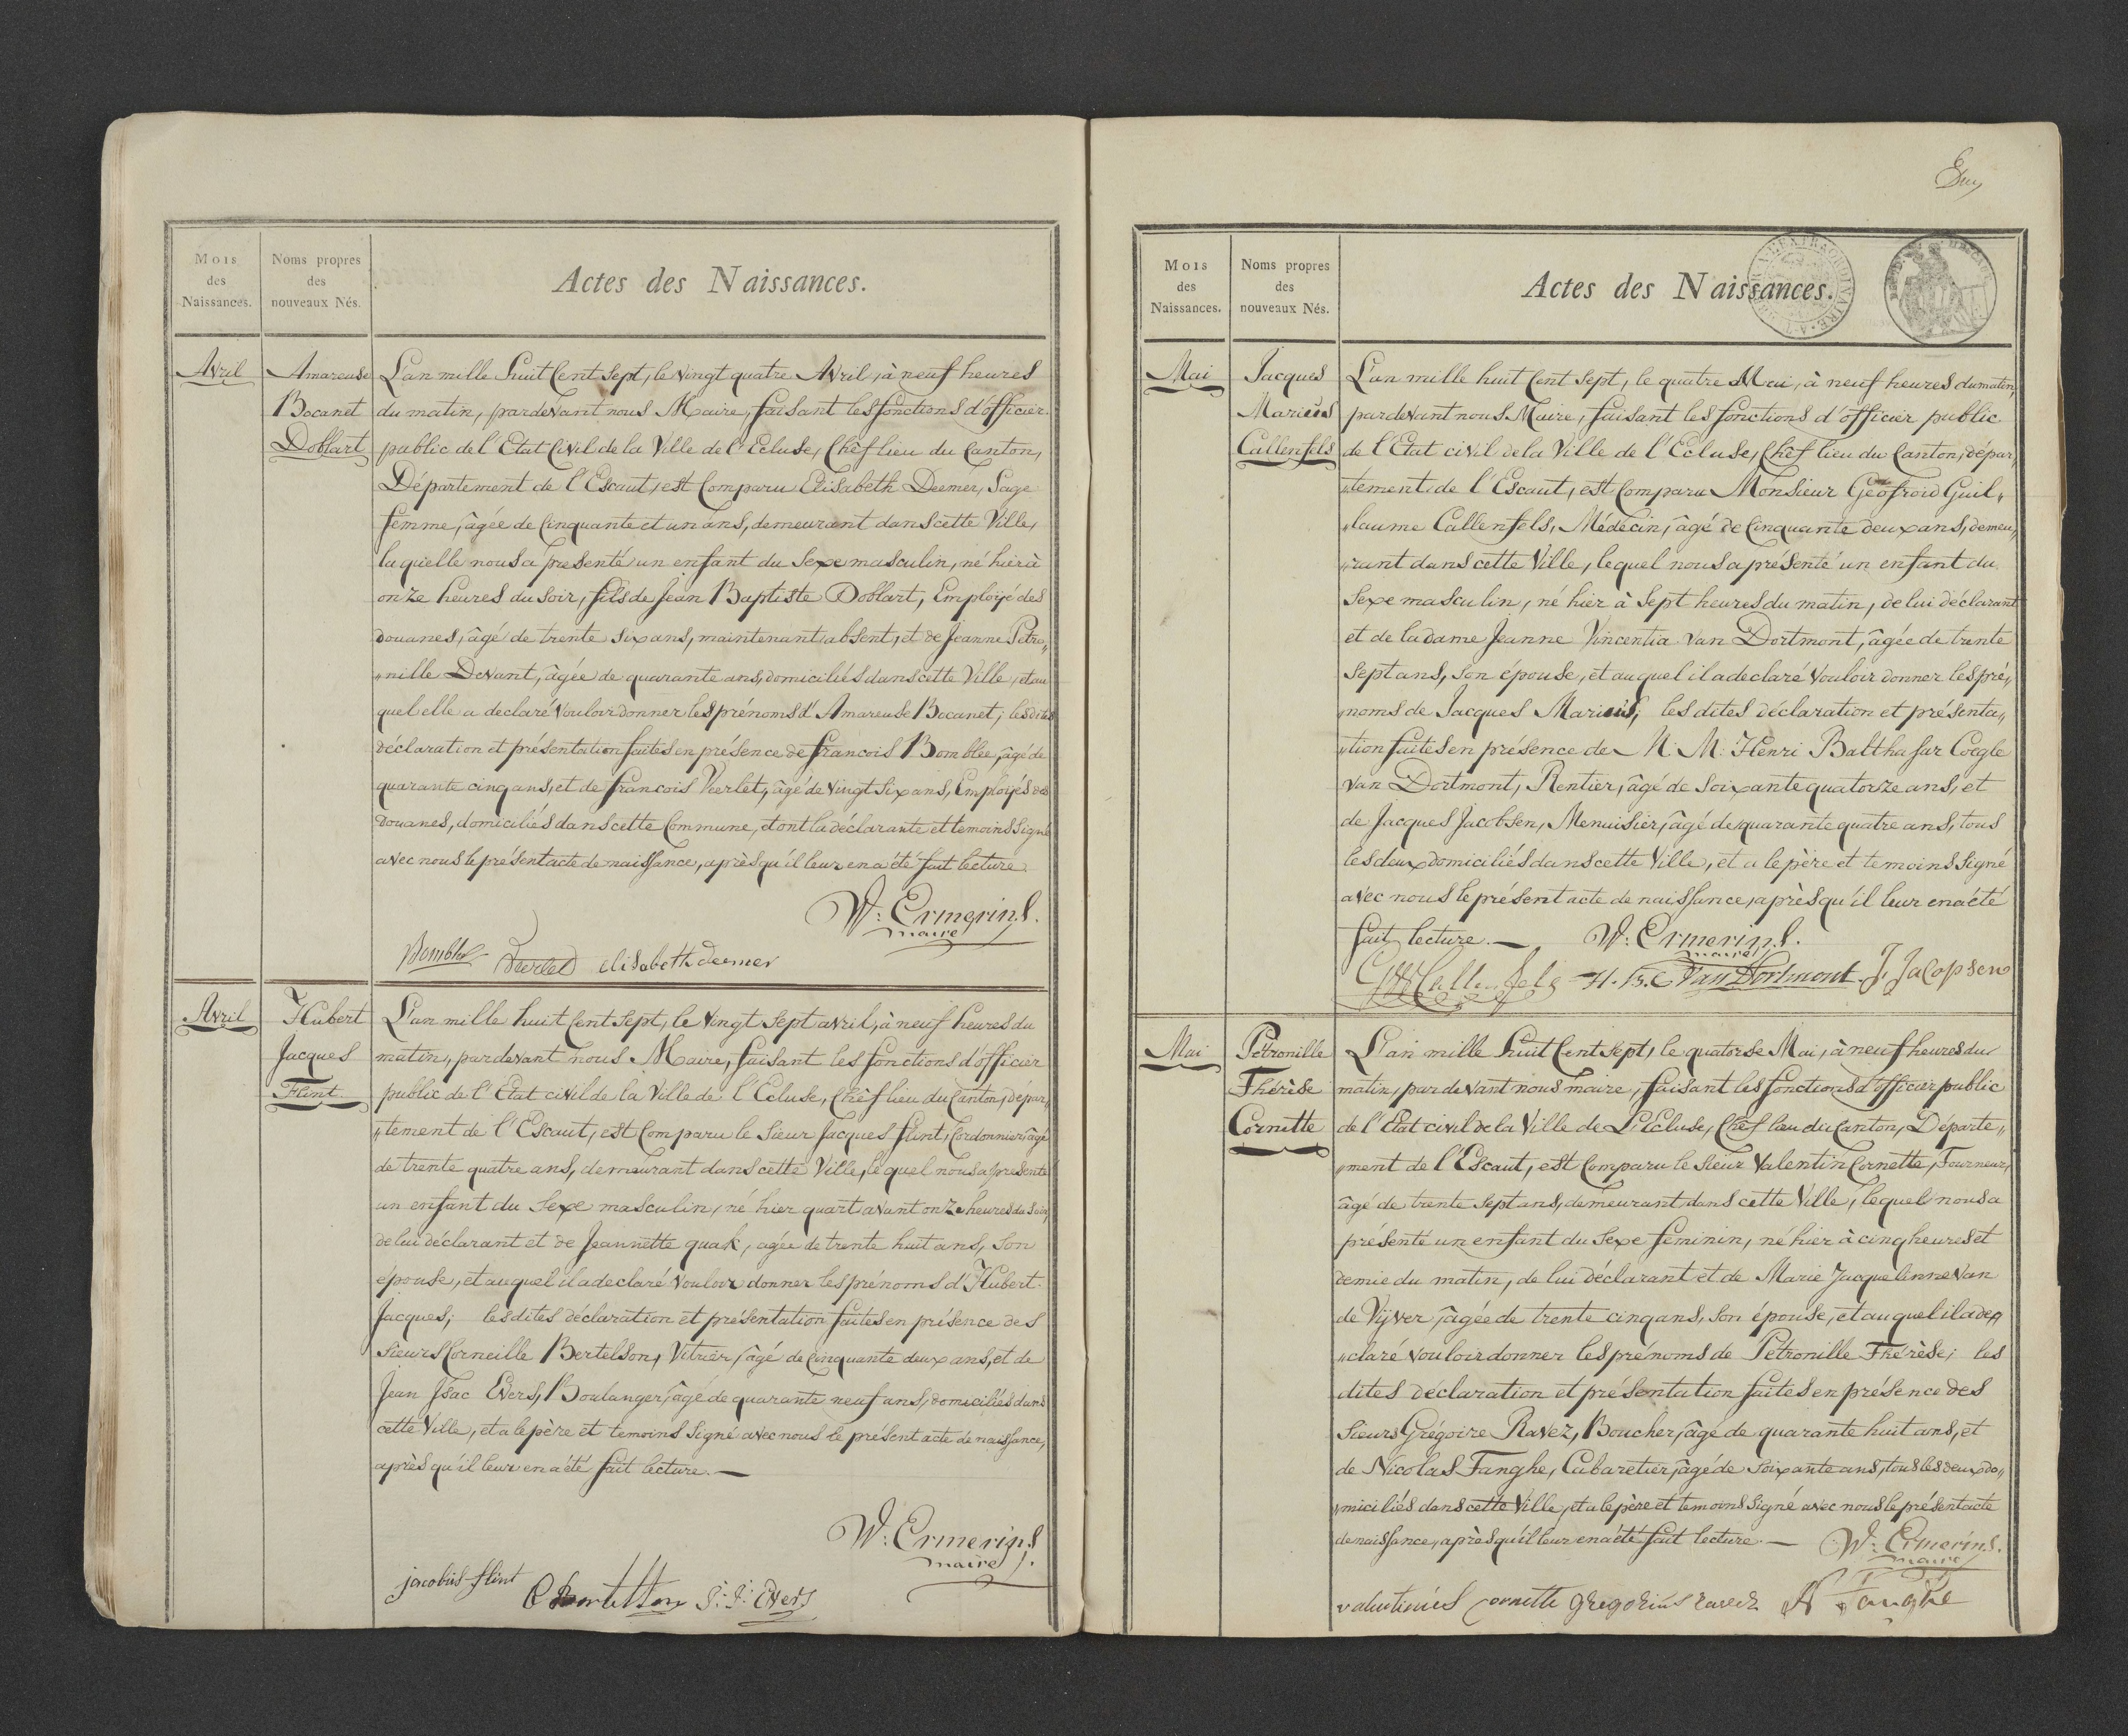 Mois
des
Naissances.
Noms propres
des
nouveaux Nés.
Actes des Naissances.
Avril
Amareuse
Bocanet
Doblart
L'an mille huit Cent Sept, le vingt quatre Avril, à neuf heures
du matin, pardevant nous Maire, faisant les fonctions d'officier
public de l'Etat Civil de la Ville de l'Ecluse, Chef lieu du Canton,
Département de l'Escaut, est Comparu Elisabeth Deemer, Sage
femme, âgée de Cinquante et un ans, demeurant dans cette Ville,
laquelle nous a presenté un enfant du Sexe masculin, né hier à
onze heures du Soir, fils de Jean Baptiste Doblart, Employé des
douanes, âgé de trente six ans, maintenant absent, et de Jeanne Pétro„
„nille Devant, âgée de quarante ans, domiciliés dans cette Ville, et au
quel elle a declaré Vouloir donner les prénoms d'Amareuse Bocanet; les dites
déclaration et présentation faites en présence de francois Bomblee, âgé de
quarante cinq ans, et de francois Vierlet, âgé de vingt Six ans, Employés des
Douanes, domiciliés dans cette Commune, et ont la déclarante et temoins Signé
avec nous le présent acte de naissance, après qu'il leur en a été fait lecture.
W: Ermerins.
maire
elisabeth deemer
Avril
Hubert
Jacques
Flint
L'an mille huit Cent Sept, le Vingt Sept avril, à neuf heures du
matin, pardevant nous Maire, faisant les fonctions d'officier
public de l'Etat civil de la Ville de l'Ecluse, Chef lieu du Canton, dépar„
„tement de l'Escaut, est Comparu le Sieur Jacques flint, Cordonnier, âgé
de trente quatre ans, demeurant dans cette Ville, lequel nous a presenté
un enfant du Sexe masculin, né hier quart avant onze heures du Soir,
de lui déclarant et de Jeannette quak, agée de trente huit ans, Son
épouse, et auquel il a declaré Vouloir donner les prénoms d'Hubert
Jacques; les dites déclaration et présentation faites en présence des
Sieurs Corneille Bertelson, Vitrier, âgé de Cinquante deux ans, et de
Jean Isac Evers, Boulanger, âgé de quarante neuf ans, domiciliés dans
cette Ville, et a le père et temoins Signé avec nous le présent acte de naissance,
après qu'il leur en a été fait lecture. —
W: Ermerins
maire
jacobus flint
J: J: Evers
Mois
des
Naissances.
Noms propres
des
nouveaux Nés.
Actes des Naissances.
Mai
Jacques
Marieus
Callenfels
L'an mille huit Cent Sept, le quatre Mai, à neuf heures du matin,
pardevant nous Maire, faisant les fonctions d'officier public
de l'Etat civil de la Ville de l'Ecluse, Chef lieu du Canton, dépar„
„tement de l'Escaut, est Comparu Monsieur Géofroid Guil„
„laume Callenfels, Médecin, âgé de Cinquante deux ans, demeu„
„rant dans cette Ville, lequel nous a présenté un enfant du
Sexe masculin, né hier à Sept heures du matin, de lui déclarant
et de la dame Jeanne Vincentia van Dortmont, âgée de trente
Sept ans, Son épouse, et auquel il a declaré Vouloir donner les pré„
„noms de Jacques Marieus; les dites déclaration et présenta„
„tion faites en présence de M. M. Henri Balthasar Coegle
van Dortmont, Rentier, âgé de Soixante quatorze ans, et
de Jacques Jacobsen, Menuisier, âgé de quarante quatre ans, tous
les deux domiciliés dans cette Ville, et a le père et temoins Signé
avec nous le présent acte de naissance, après qu'il leur en a été
fait lecture. — W: Ermerins.
maire
GW Callenfels H. B. C Van Dortmont. J, Jacopsen
Mai
Pétronille
Thérèse
Cornette
L'an mille huit Cent Sept, le quatorse Mai, à neuf heures du
matin, par devant nous maire, faisant les fonctions d'officier public
de l'Etat civil de la Ville de L'Ecluse, Chef lieu du Canton, Départe„
„ment de l'Escaut, est Comparu le Sieur Valentin Cornette, Fourneur,
âgé de trente Sept ans, demeurant dans cette Ville, lequel nous a
présenté un enfant du Sexe féminin, né hier à cinq heures et
demie du matin, de lui déclarant et de Marie Jacquelinne Van
de Vijver, âgée de trente cinq ans, Son épouse, et auquel il a dé„
„claré vouloir donner les prénoms de Pétronille Thérèse; les
dites déclaration et présentation faites en présence des
Sieurs Grégoire Ravez, Boucher, âgé de quarante huit ans, et
de Nicolas Fanghe, Cabaretier, âgé de Soixante ans, tous les deux do„
„miciliés dans cette Ville, et a le père et temoins Signé avec nous le présent acte
de naissance, après qu'il leur en a été fait lecture. — W: Ermerins.
maire
valentinus cornette gregorius ravez N Fanghe